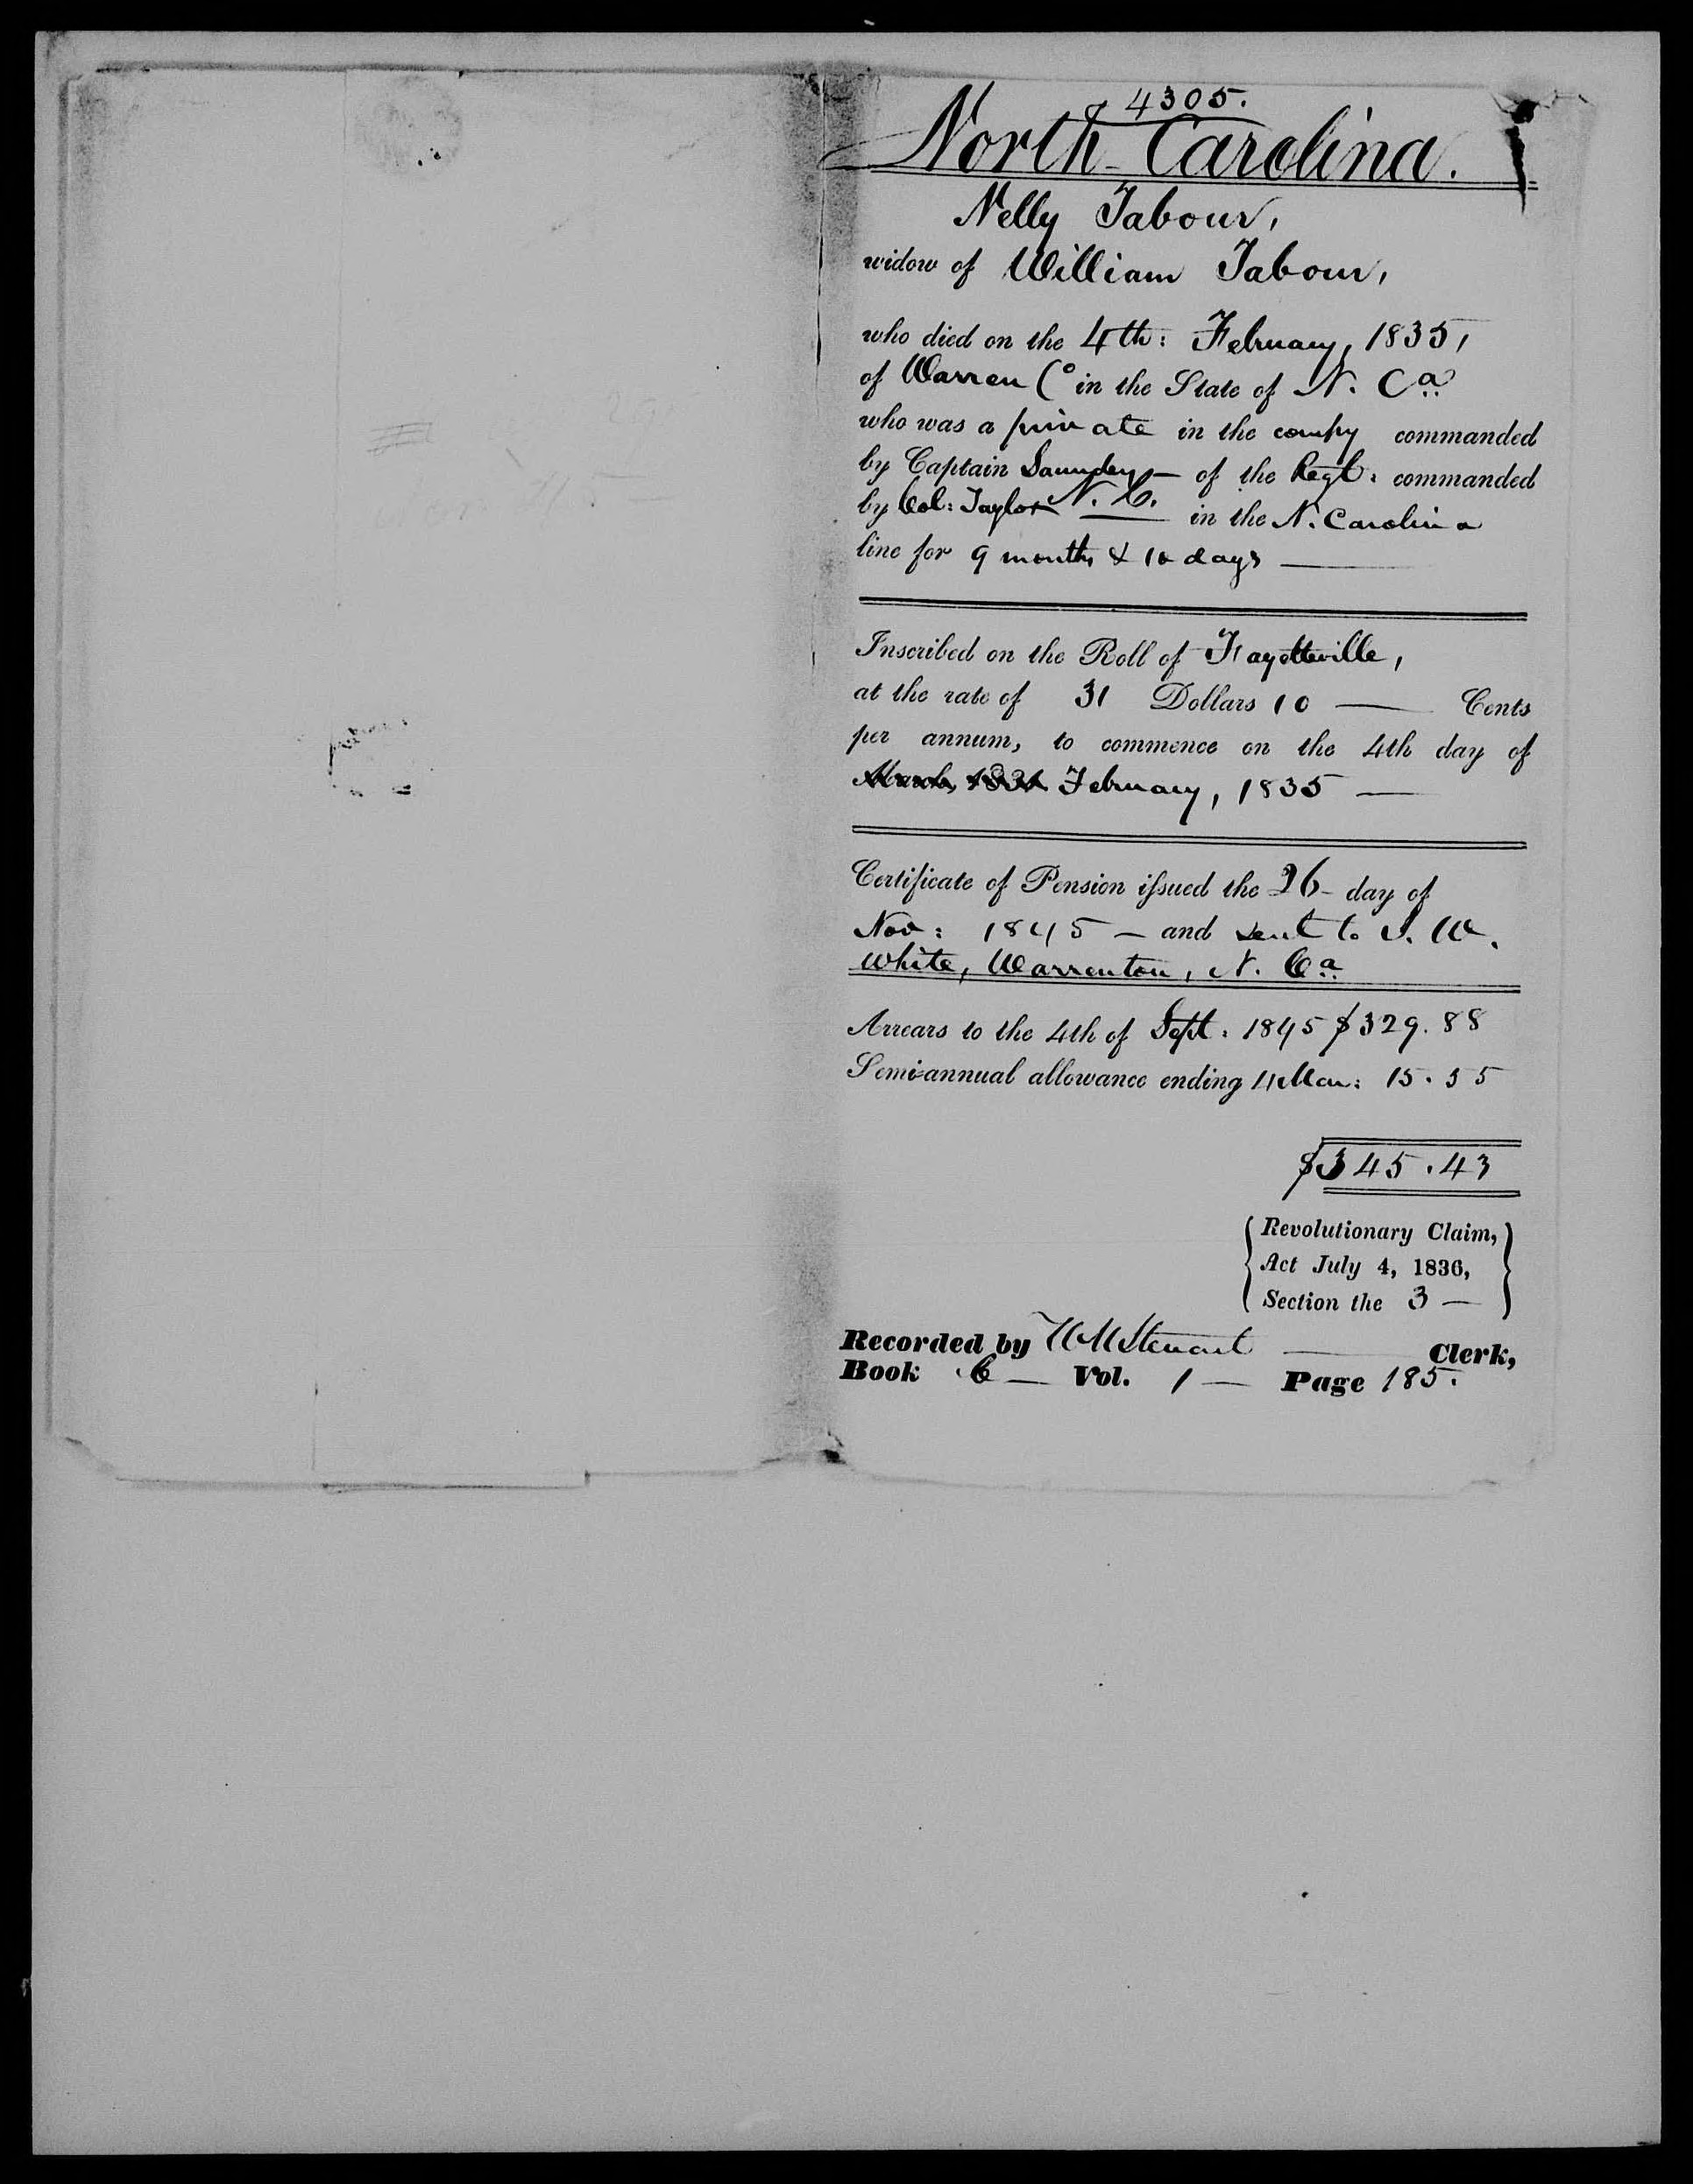 4305.
North Carolina.
Nelly Tabour,
widow of William Tabour,
who died on the 4th: February, 1835,
of Warren Co in the State of N. Ca
who was a private in the compy commanded
by Captain Saunders — of the Regt: commanded
by Col: Taylor N. C. in the N. Carolina
line for 9 months & 10 days —
Inscribed on the Roll of Fayetteville,
at the rate of 31 Dollars 10 — Cents
per annum, to commence on the 4th day of
March, 1831 February, 1835 —
Certificate of Pension issued the 26 - day of
Nov: 1845 — and sent to
White, Warrenton, N. Ca
Arrears to the 4th of Sept: 1845 $329.88
Semi-annual allowance ending 4 Mar: 15.55
$345.43
Revolutionary Claim,
Act July 4, 1836,
Section the 3 —
Recorded by Stewart — Clerk,
Book C — Vol. 1 — Page 185.